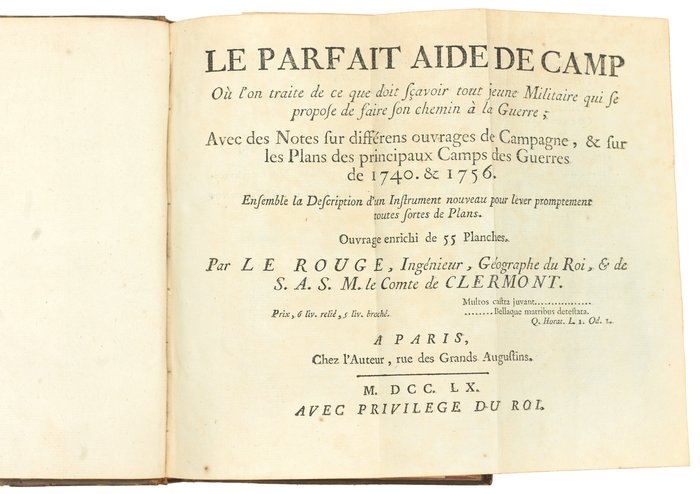 LE PARFAIT AIDE DE CAMP
Où l'on traite de ce que doit ſçavoir tout jeune Militaire qui ſe
propoſe de faire ſon chemin à la Guerre ;
Avec des Notes ſur différens ouvrages de Campagne, & ſur
les Plans des principaux Camps des Guerres
de 1740. & 1756.
Enſemble la Deſcription d'un Inſtrument nouveau pour lever promptement
toutes ſortes de Plans.
Ouvrage enrichi de 55 Planches.
Par LE ROUGE, Ingénieur, Géographe du Roi, & de
S. A. S. M. le Comte de CLERMONT.
Multos caſtra juvant................
Prix, 6 liv. relié, 5 liv. broché.
........Bellaque matribus deteſtata.
Q. Horat. L. 1. Od. 1.
A PARIS,
Chez l'Auteur, rue des Grands Auguſtins.
M. DCC. LX.
AVEC PRIVILEGE DU ROI.